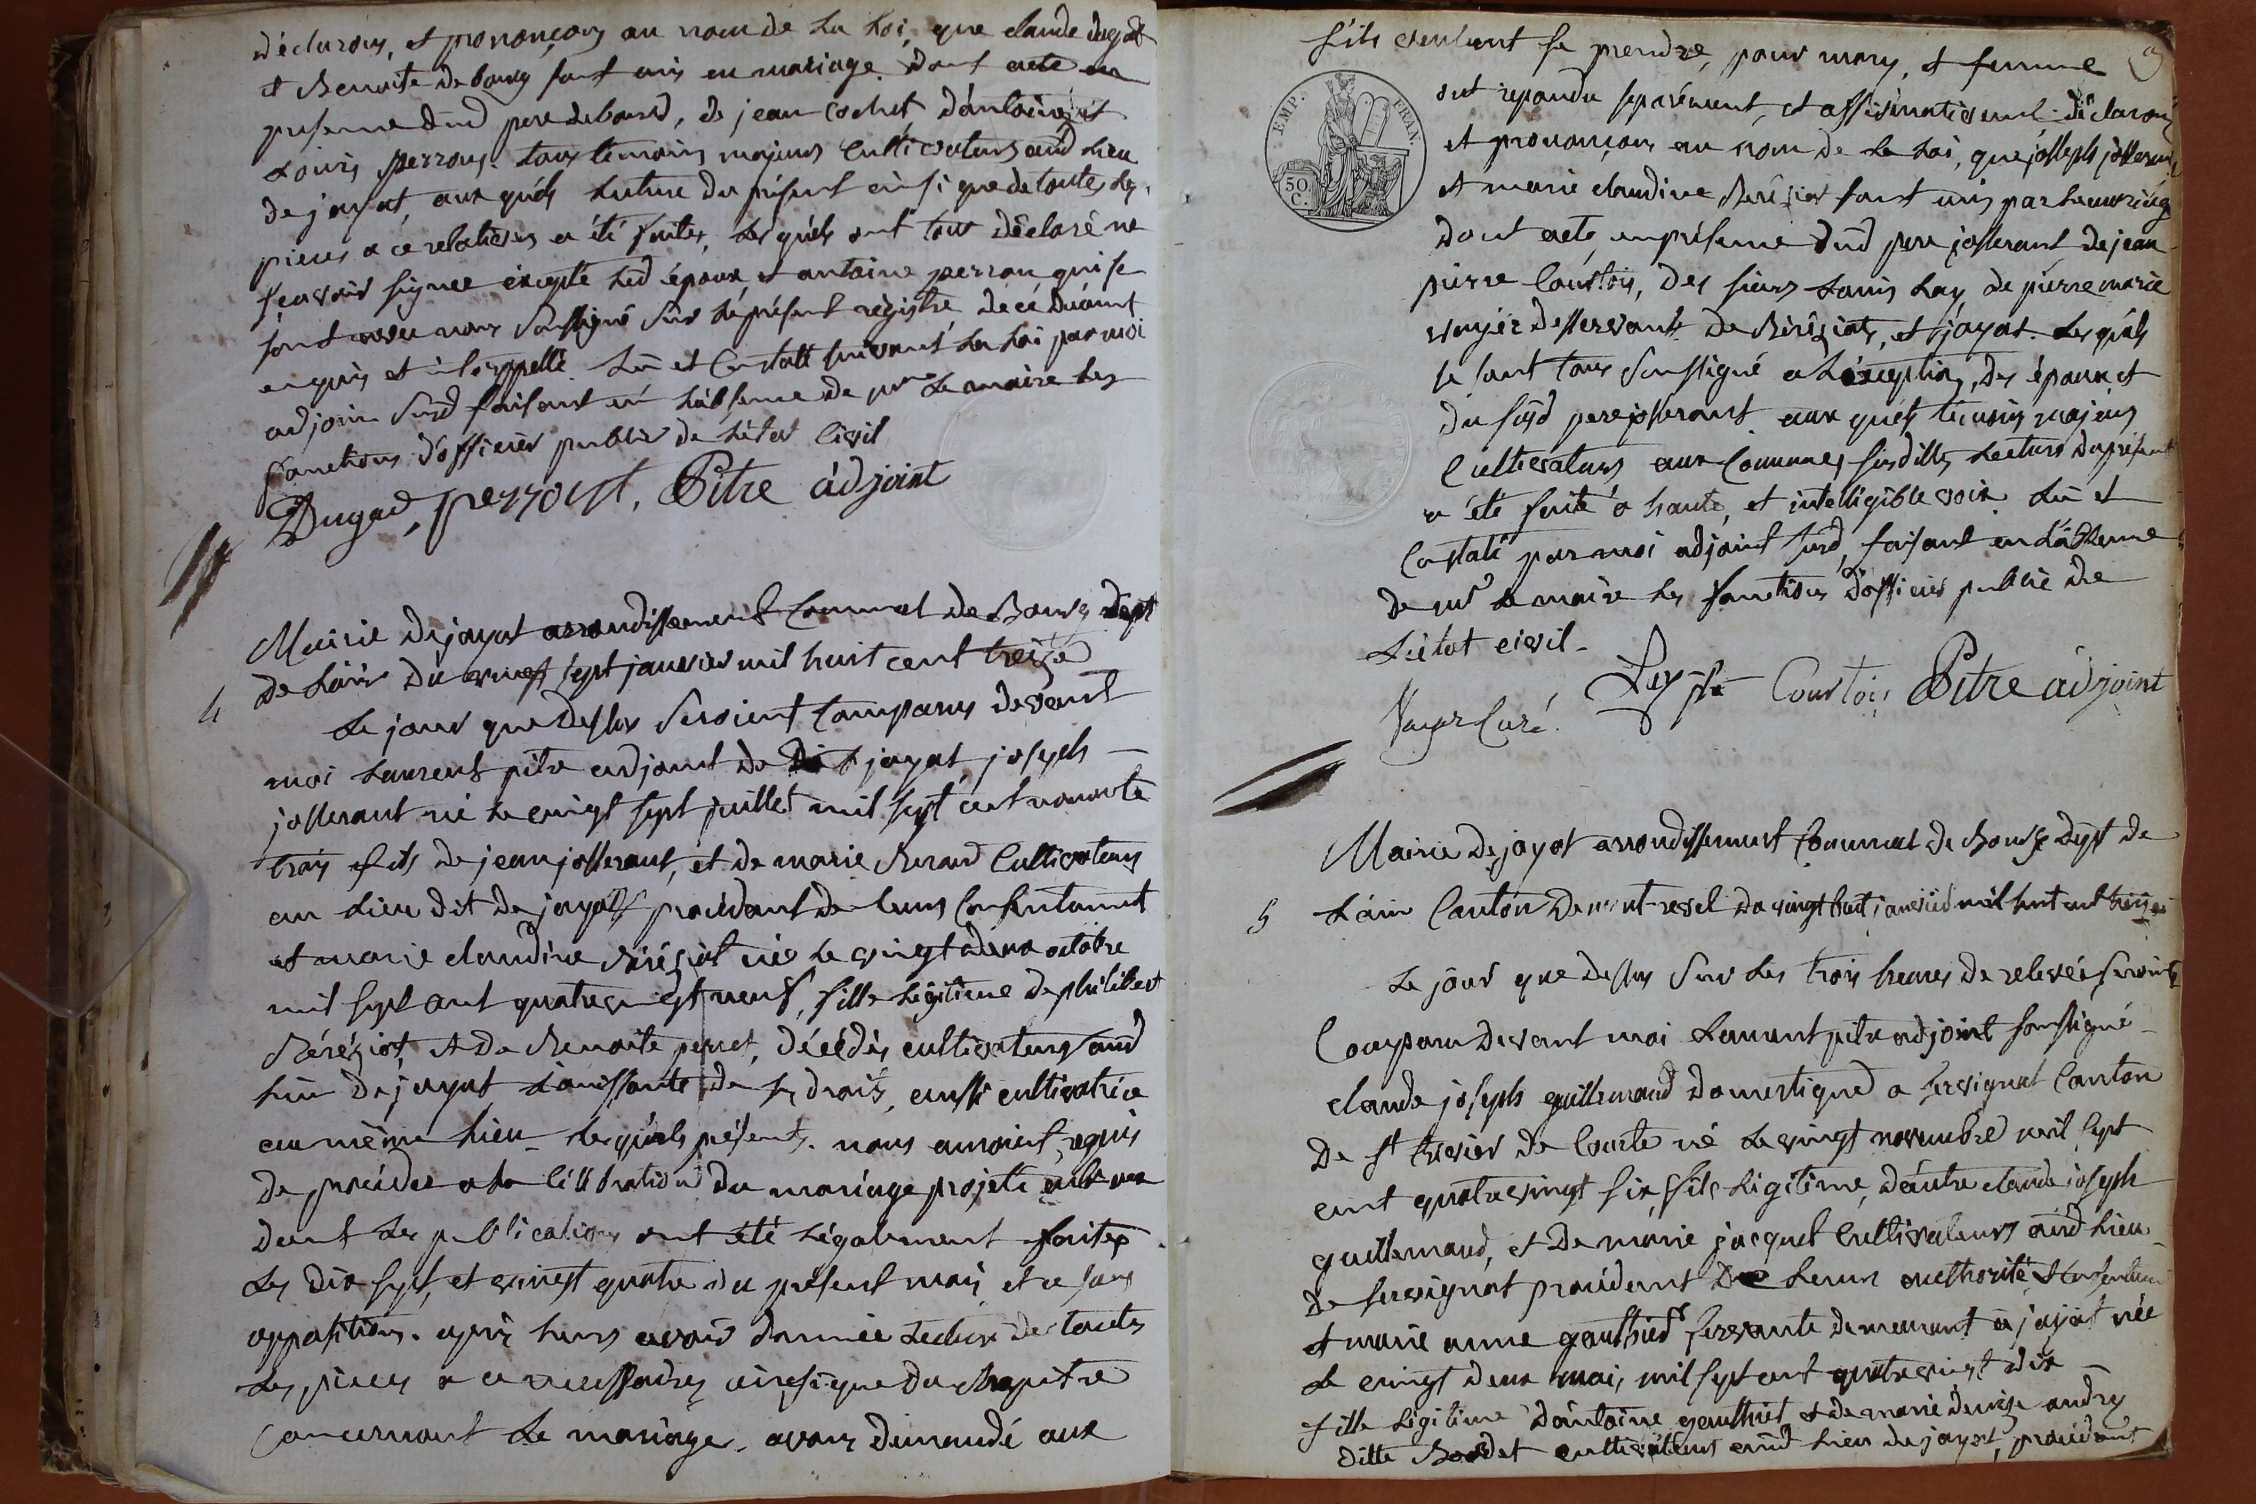 déclarons, et prononçons au nom de la Loi, que claude dugad
et Benoite de bourg sont unis en mariage. Dont acte en
présence dud pere debourd, de jean cochet, d'antoine et
Louis perroux. tous temoins majeurs cultivateurs aud Lieu
de jayat, aux quels Lecture du présent einsi que de toutes Les
pieces a ce relatives a été faites, Les quels ont tous déclaré ne
sçavoir signer éxcepté Led époux, et antoine perrou qui se
sont avec nous soussigné sur Le présent régistre de cé Duëmt
enquis et interppellé. Lu et Constaté suivant La Loi par moi
adjoin susd faisant en L'absence de mr Le maire Les
fonctions d'officier public de L'état Civil
Dugad, perroust, Pitre adjoint
4
Mairie de jayat arrondissement Communal de Bourg dept
de L'ain du vingt sept janvier mil huit cent treize
Le jour que dessus Seroient Comparus devant
moi Laurent pitre adjoint de Dit jayat, joseph
josserant né Le vingt sept juillet mil sept cent nonante
trois fils de jean josserant, et de marie Berard Cultivateurs
au Lieu dit de jayat procédant de Leurs Consentement
et marie claudine Béréziat née Le vingt deux octobre
mil sept cent quatrevingt neuf, fille Légitime de philibert
Béréziat, et de Benoite perret, décédés cultivateurs aud
Lieu de jayat Jouissante de ses droits, aussi cultivatrice
au même Lieu Les quels présents. nous auroient requis
de procéder a la célébration du mariage projeté entre eux
dont Les publications ont été Légalement faites
Les dix sept, et vingt quatre du présent mois, et ce sans
oppositions. après Leurs avoir donnée Lecture de toutes
Les pieces a ce nécessaires, ainsi que du Chapitre
Concernant Le mariage. avons demandé aux
s'ils veulent se prendre, pour mary, et femme
ont repondu séparément, et affirmativement. déclarons
et prononçons au nom de la Loi, que josseph josserand
et marie claudine Béréziat sont unis par Le mariage
dont acte, en présence dud pere josserant, de jean
pierre Courtois, des sieurs Louis Lay, de pierre marie
voyer desservants de Béréziat, et jayat. Les quels
se sont tous soussigné a L'éxception, des époux, et
du susd pere josserant. aux quels témoins majeurs
Cultivateurs aux Communes susdittes Lecture du présent
a été faite à haute, et intelligible voix. Lu et
Constaté par moi adjoint susd, faisant en L'absence
de mr Le maire Les fonctions d'officier public de
L'état civil.
EMP. FRAN.
50 C.
Courtois Pitre adjoint
Curé.
5
Mairie de jayat arrondissement Communal de Bourg dept de
L'ain Canton de mont-revel du vingt huit janvier mil huit cent treize
Le jour que dessus sur Les trois heures de relevée, seroient
Comparu devant moi Laurent pitre adjoint soussigné
claude joseph guillemaud domestique a servignat Canton
de st trivier de Courte né Le vingt novembre mil sept
cent quatrevingt six, fils Légitime, d'autre claude joseph
guillemaud, et de marie jacquet Cultivateurs aud Lieu
de servignat procédant de Leurs authorité, et Consentement
et marie anne gauthier servante demeurant à jayat née
Le vingt deux mai, mil sept cent quatrevingt dix
fille Légitime d'antoine gauthiet, et de marie denize andrey
ditte Bordet cultivateurs aud Lieu de jayat, procédant